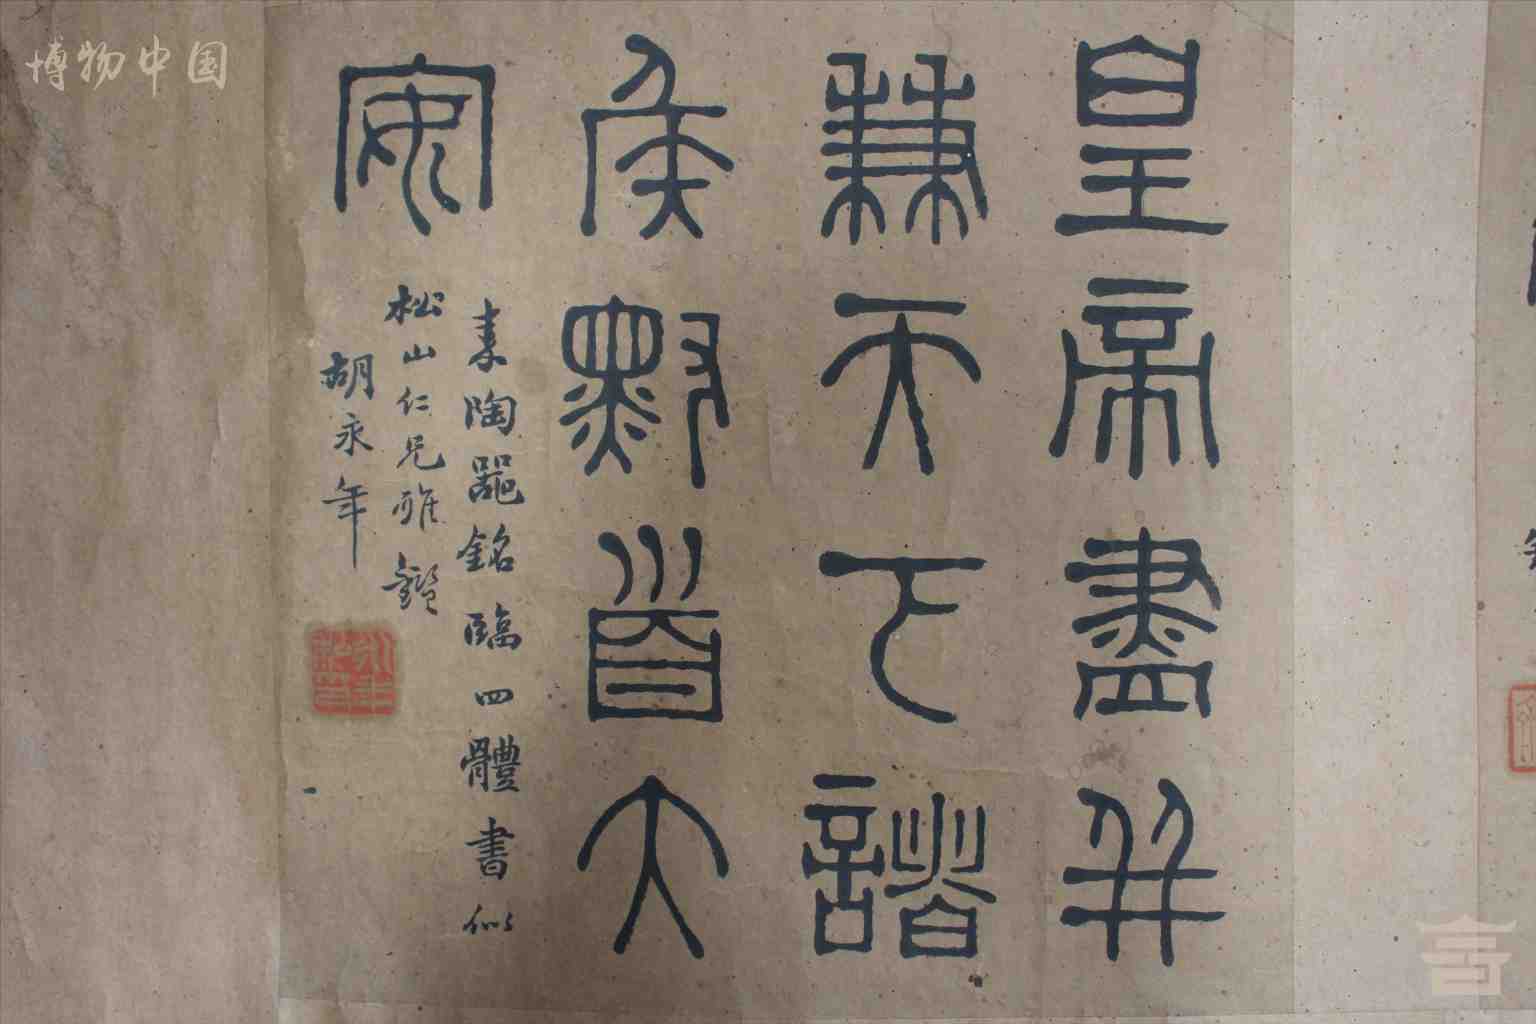 博物中国
皇帝盡并
兼天下諸
侯黔首大
安
秦陶器銘臨四體書似
松山仁兄雅鑑
胡永年